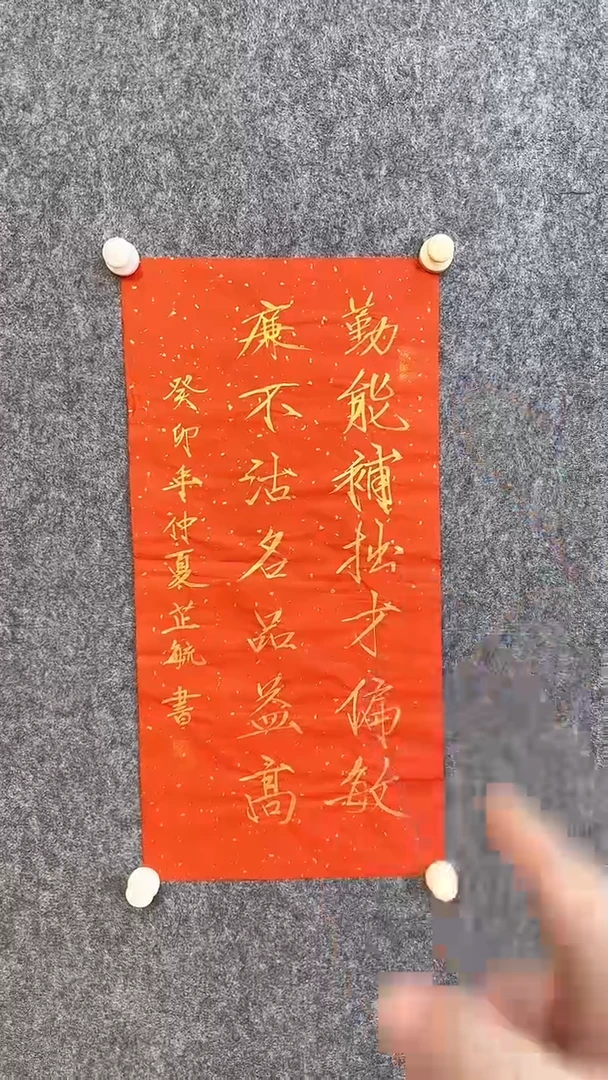 勤能補拙才偏敏
廉不沽名品益高
癸卯年仲夏芷毓書